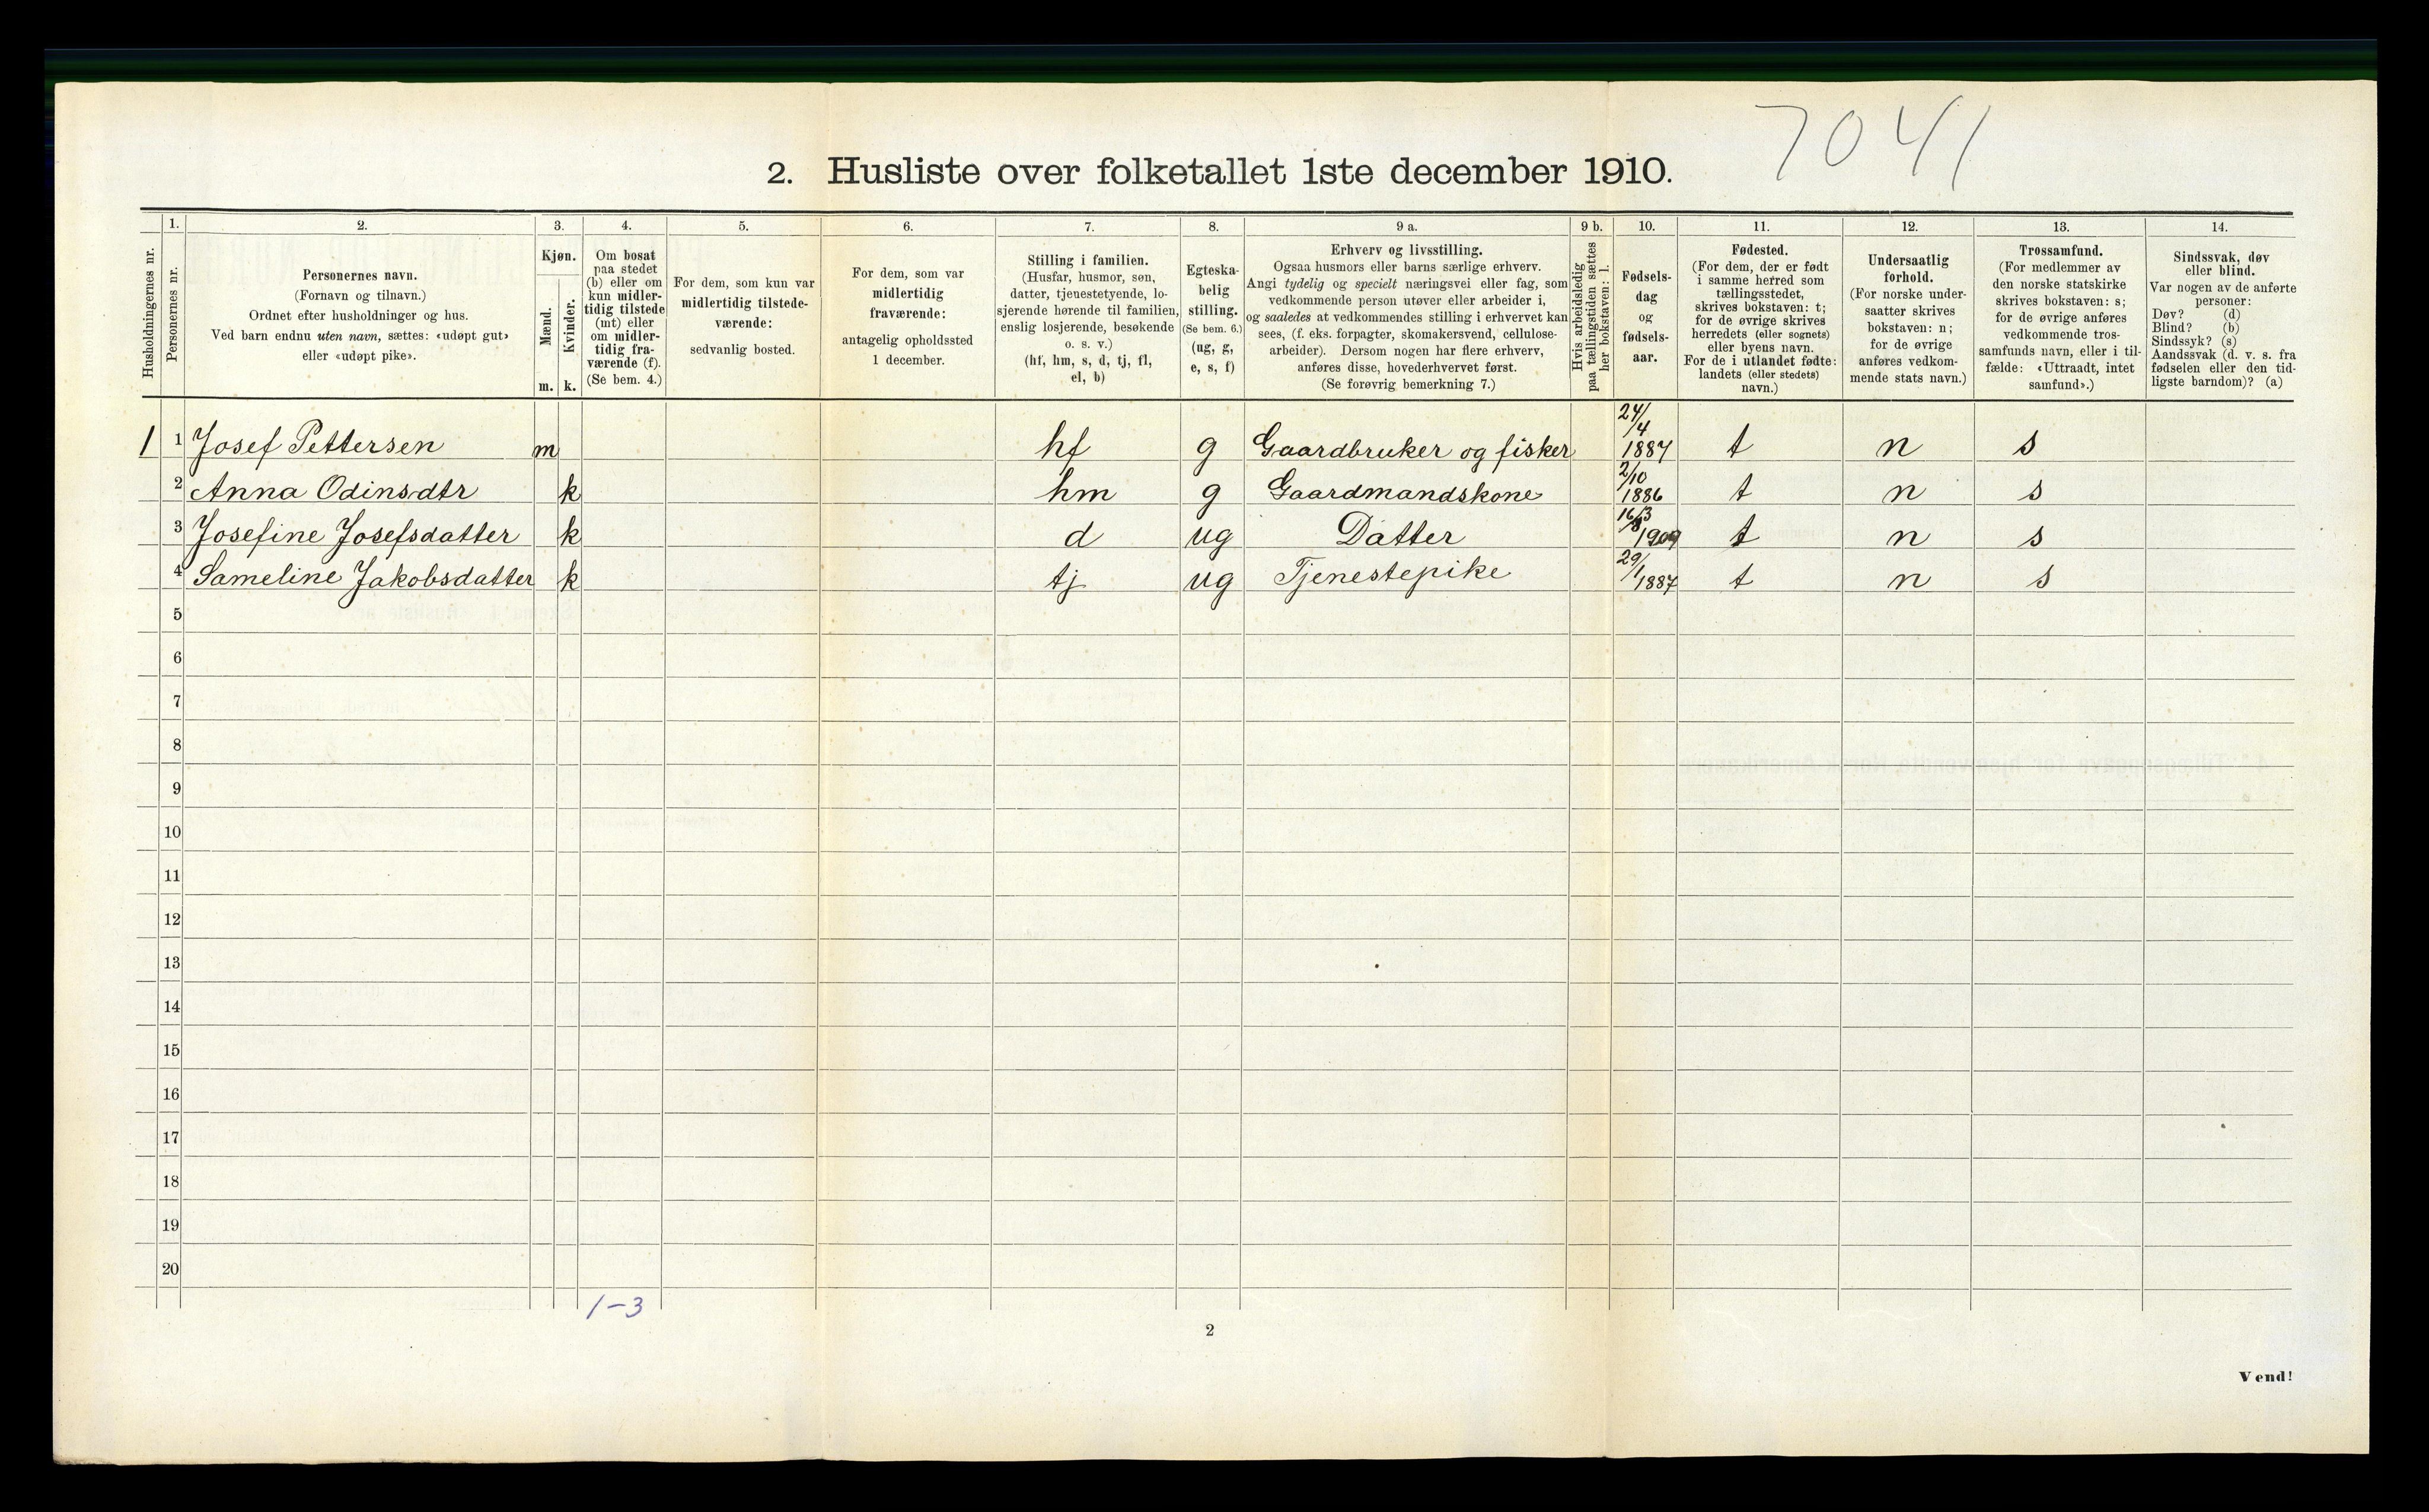 7041
2. Husliste over folketallet 1ste december 1910.
Husholdningernes nr.
1.
Personernes nr.
2.
Personernes navn.
(Fornavn og tilnavn.)
Ordnet efter husholdninger og hus.
Ved barn endnu uten navn, sættes: «udøpt gut»
eller «udøpt pike».
3.
Kjøn.
Mænd.
Kvinder.
m. k.
4.
Om bosat
paa stedet
(b) eller om
kun midler-
tidig tilstede
(mt) eller
om midler-
tidig fra-
værende (f).
(Se bem. 4.)
5.
For dem, som kun var
midlertidig tilstede-
værende:
sedvanlig bosted.
6.
For dem, som var
midlertidig
fraværende:
antagelig opholdssted
1 december.
7.
Stilling i familien.
(Husfar, husmor, søn,
datter, tjenestetyende, lo-
sjerende hørende til familien,
enslig losjerende, besøkende
o. s. v.)
(hf, hm, s, d, tj, fl,
el, b)
8.
Egteska-
belig
stilling.
(Se bem. 6.)
(ug, g,
e, s, f)
9 a.
Erhverv og livsstilling.
Ogsaa husmors eller barns særlige erhverv.
Angi tydelig og specielt næringsvei eller fag, som
vedkommende person utøver eller arbeider i,
og saaledes at vedkommendes stilling i erhvervet kan
sees, (f. eks. forpagter, skomakersvend, cellulose-
arbeider). Dersom nogen har flere erhverv,
anføres disse, hovederhvervet først.
(Se forøvrig bemerkning 7.)
9 b.
Hvis arbeidsledig
paa tællingstiden sættes
her bokstaven: l.
10.
Fødsels-
dag
og
fødsels-
aar.
11.
Fødested.
(For dem, der er født
i samme herred som
tællingsstedet,
skrives bokstaven: t;
for de øvrige skrives
herredets (eller sognets)
eller byens navn.
For de i utlandet fødte:
landets (eller stedets)
navn.)
12.
Undersaatlig
forhold.
(For norske under-
saatter skrives
bokstaven: n;
for de øvrige
anføres vedkom-
mende stats navn.)
13.
Trossamfund.
(For medlemmer av
den norske statskirke
skrives bokstaven: s;
for de øvrige anføres
vedkommende tros-
samfunds navn, eller i til-
fælde: «Uttraadt, intet
samfund».)
14.
Sindssvak, døv
eller blind.
Var nogen av de anførte
personer:
Døv? (d)
Blind? (b)
Sindssyk? (s)
Aandssvak (d. v. s. fra
fødselen eller den tid-
ligste barndom)? (a)
1 1 Josef Pettersen m hf g Gaardbruker og fisker 24/4 1887 t n s
2 Anna Odinsdtr k hm g Gaardmandskone 2/10 1886 t n s
3 Josefine Josefsdatter k d ug Datter 16/3 1909 t n s
4 Sameline Jakobsdatter k tj ug Tjenestepike 29/1 1887 t n s
5
6
7
8
9
10
11
12
13
14
15
16
17
18
19
20
1-3
2
Vend!